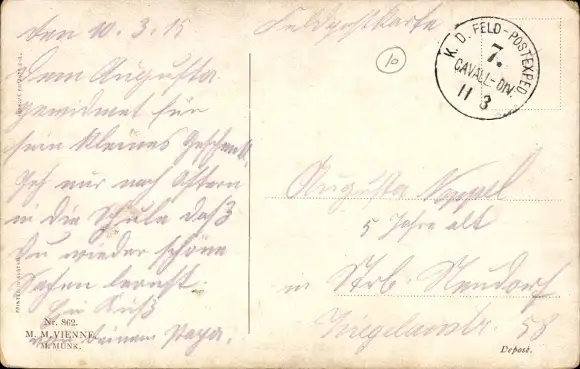 den 10.3.15
Feldpostkarte
10
K. D. FELD-POSTEXPED.
7.
CAVALL-DIV.
11 3
Dem Augusta
gewidmet für
sein kleines Geschenk.
Geh nur nach Ostern
in die Schule daß
Du wieder schöne
Sachen lernst.
Ein Kuß
von Deinem Papa.
Augusta Nappel
5 Jahre alt
in Strb. Neudorf
Ziegelaustr. 58
Nr. 862.
M. M. VIENNE
M. MUNK.
Deposé.